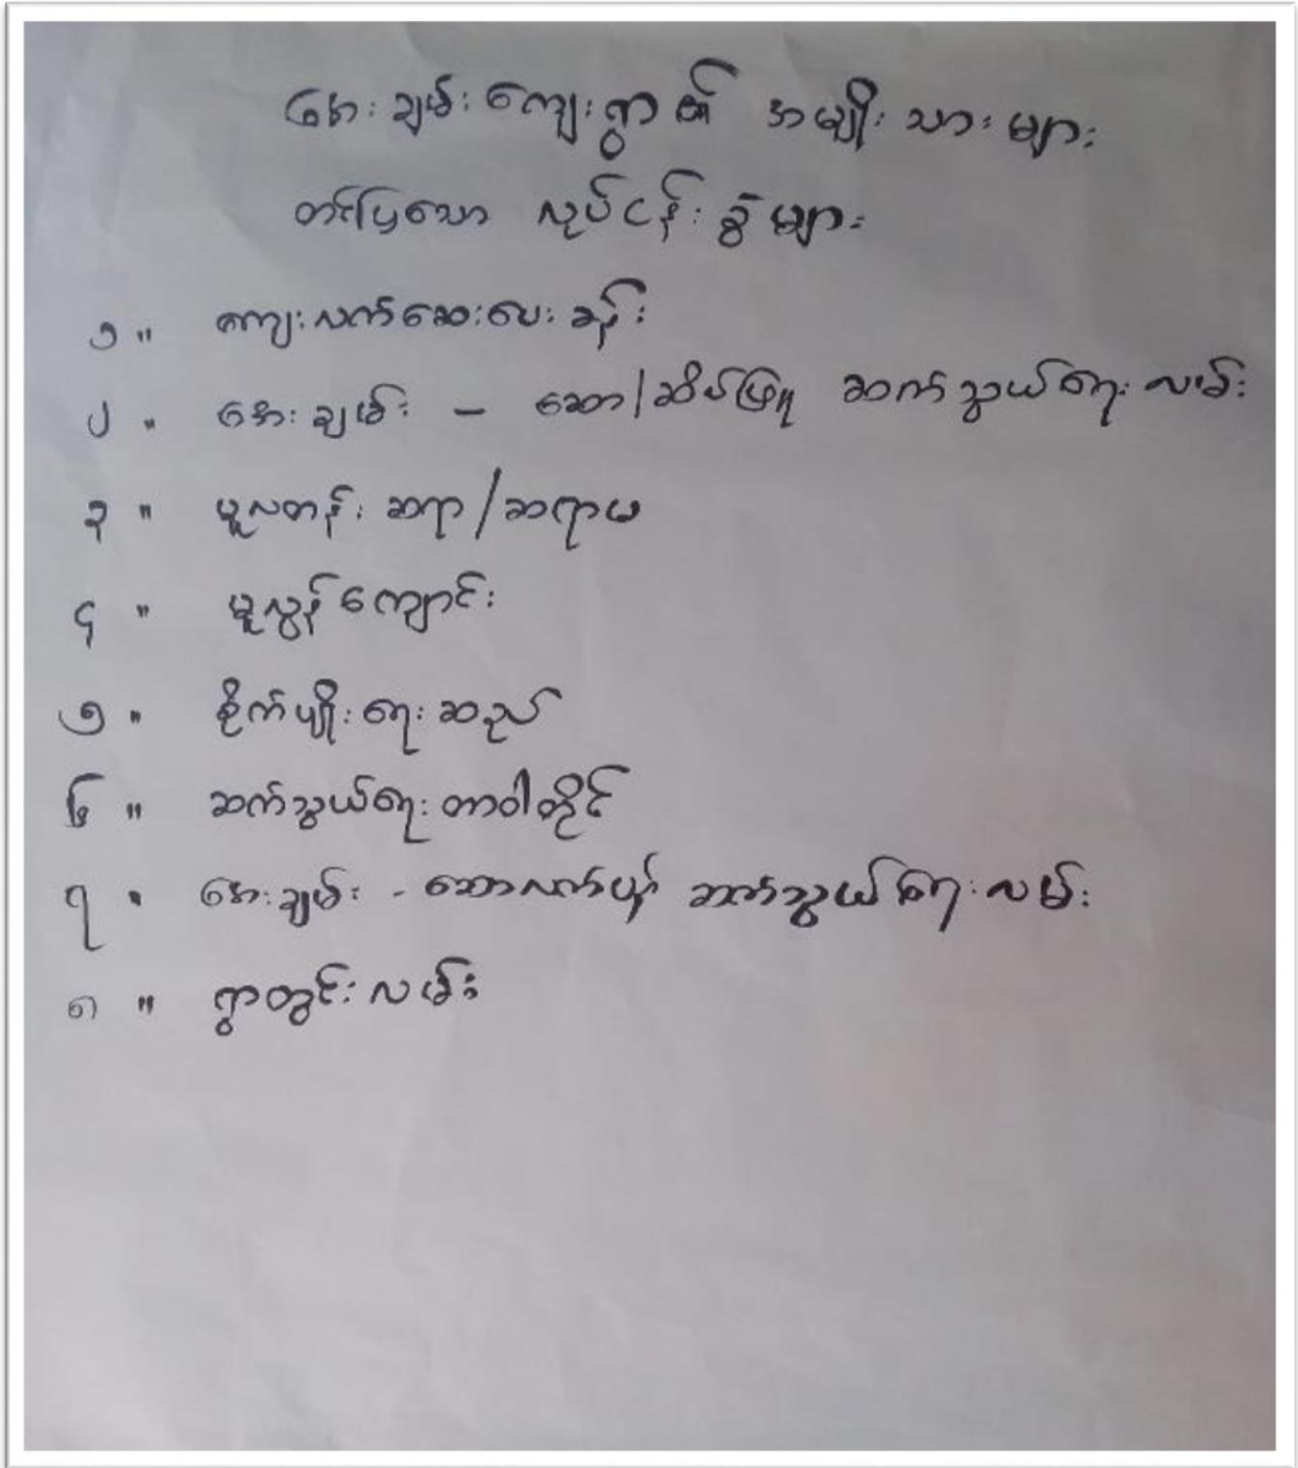 အေးချမ်းကျေးရွာ၏ အမျိုးသားများ
တင်ပြသော လုပ်ငန်းခွဲများ
၁ ။ ကျေးလက်ဆေးပေးခန်း
၂ ။ အေးချမ်း - ဆော/ဆိပ်ဖြူ ဆက်သွယ်ရေးလမ်း
၃ ။ မူလတန်းဆရာ/ဆရာမ
၄ ။ မူလွန်ကျောင်း
၅ ။ စိုက်ပျိုးရေးဆည်
၆ ။ ဆက်သွယ်ရေးတာဝါတိုင်
၇ ။ အေးချမ်း - ဆက်သွယ်ရေးလမ်း
၈ ။ ရွာတွင်းလမ်း